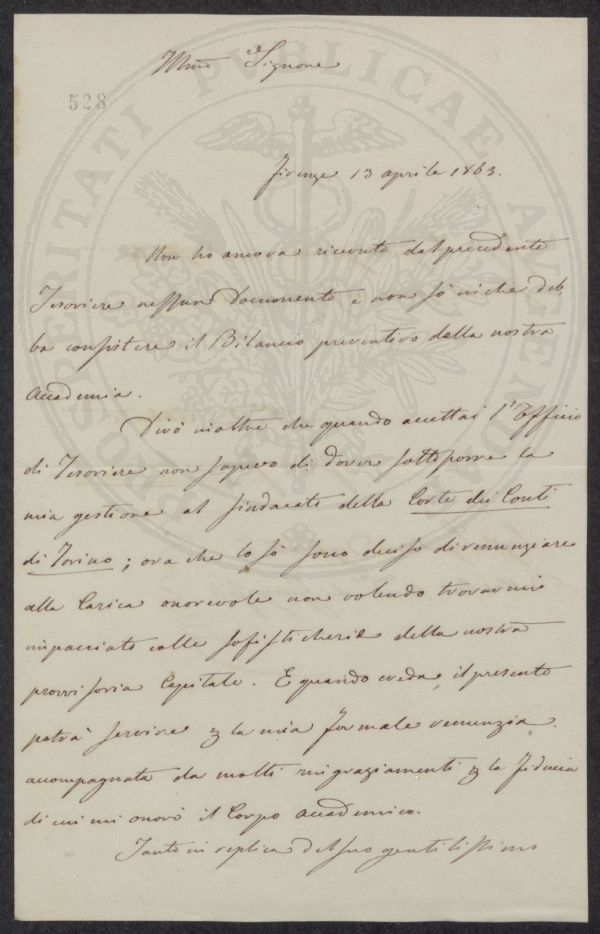 Illmo Signore
528
Firenze 13 aprile 1863.
Non ho ancora ricevuto dal precedente
Tesoriere nessun documento e non sò in che deb
ba consistere il Bilancio preventivo della nostra
Accademia.
Dirò inoltre che quando accettai l'Officio
di Tesoriere non sapevo di dover sottoporre la
mia gestione al sindacato della Corte dei Conti
di Torino; ora che lo sò sono deciso di renunziare
alla Carica onorevole non volendo trovarmi
impacciato colle sofisticherie della nostra
provvisoria Capitale. E quando creda, il presente
potrà servire p la mia formale renunzia
accompagnata da molti ringraziamenti p la fiducia
di cui mi onorò il Corpo accademico.
Tanto in replica del suo gentilissimo
PROSPERITATI PUBLICAE